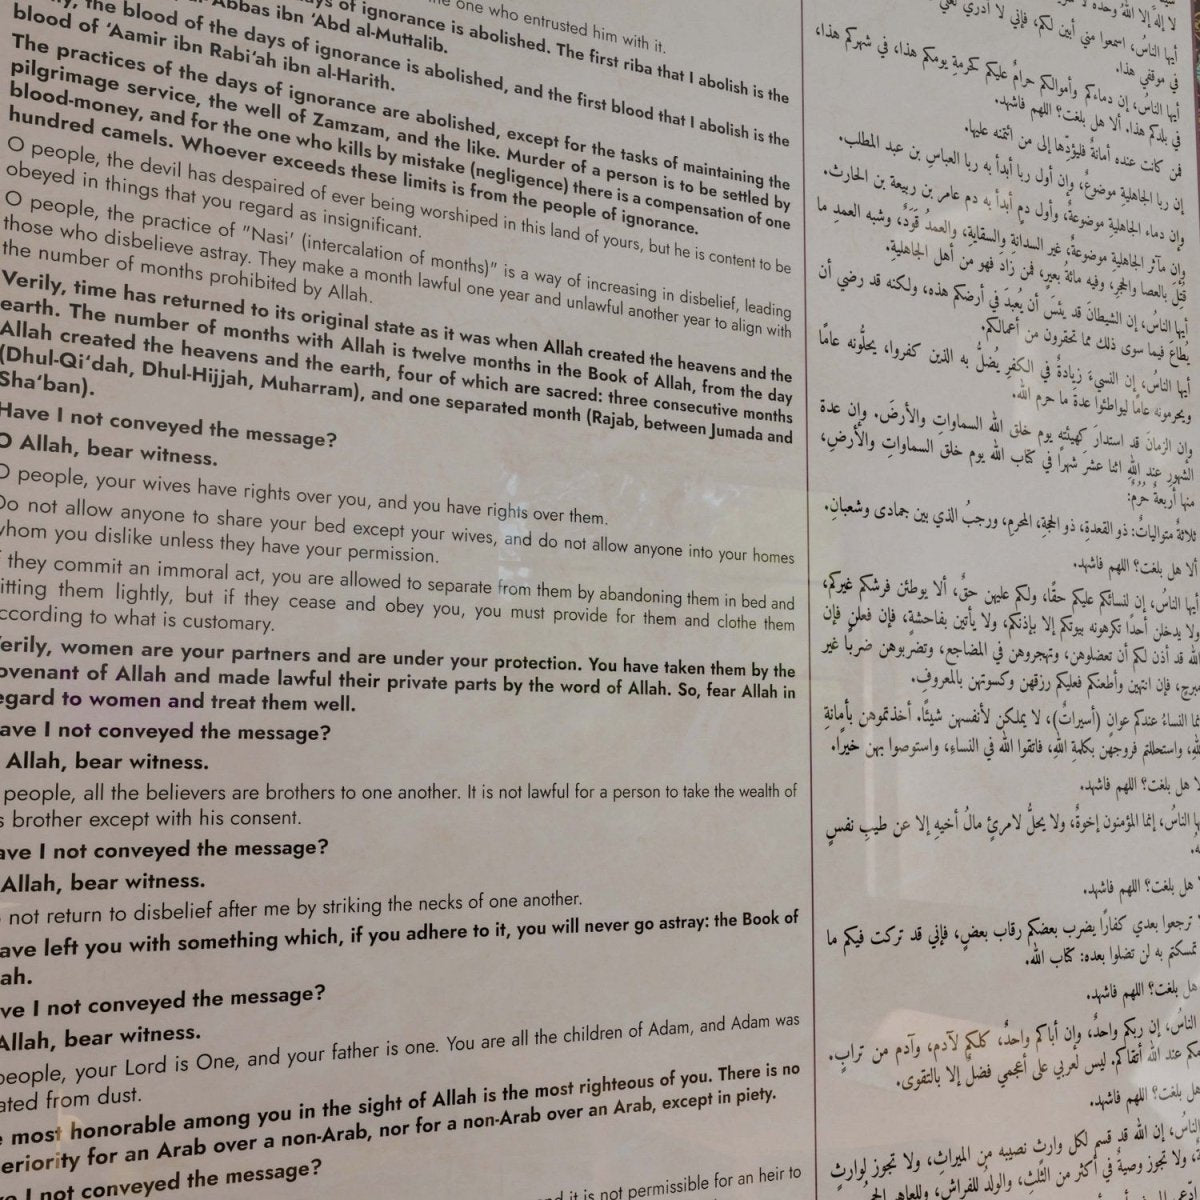 the one who entrusted him with it.
days of ignorance is abolished. The first riba that I abolish is the
Abbas ibn ‘Abd al-Muttalib.
the blood of the days of ignorance is abolished, and the first blood that I abolish is the
blood of ‘Aamir ibn Rabi‘ah ibn al-Harith.
The practices of the days of ignorance are abolished, except for the tasks of maintaining the
pilgrimage service, the well of Zamzam, and the like. Murder of a person is to be settled by
blood-money, and for the one who kills by mistake (negligence) there is a compensation of one
hundred camels. Whoever exceeds these limits is from the people of ignorance.
O people, the devil has despaired of ever being worshiped in this land of yours, but he is content to be
obeyed in things that you regard as insignificant.
O people, the practice of "Nasi' (intercalation of months)" is a way of increasing in disbelief, leading
those who disbelieve astray. They make a month lawful one year and unlawful another year to align with
the number of months prohibited by Allah.
Verily, time has returned to its original state as it was when Allah created the heavens and the
earth. The number of months with Allah is twelve months in the Book of Allah, from the day
Allah created the heavens and the earth, four of which are sacred: three consecutive months
(Dhul-Qi‘dah, Dhul-Hijjah, Muharram), and one separated month (Rajab, between Jumada and
Sha‘ban).
Have I not conveyed the message?
O Allah, bear witness.
O people, your wives have rights over you, and you have rights over them.
Do not allow anyone to share your bed except your wives, and do not allow anyone into your homes
whom you dislike unless they have your permission.
they commit an immoral act, you are allowed to separate from them by abandoning them in bed and
itting them lightly, but if they cease and obey you, you must provide for them and clothe them
ccording to what is customary.
erily, women are your partners and are under your protection. You have taken them by the
ovenant of Allah and made lawful their private parts by the word of Allah. So, fear Allah in
egard to women and treat them well.
ave I not conveyed the message?
Allah, bear witness.
people, all the believers are brothers to one another. It is not lawful for a person to take the wealth of
s brother except with his consent.
ave I not conveyed the message?
Allah, bear witness.
not return to disbelief after me by striking the necks of one another.
ave left you with something which, if you adhere to it, you will never go astray: the Book of
ah.
ve I not conveyed the message?
Allah, bear witness.
people, your Lord is One, and your father is one. You are all the children of Adam, and Adam was
ated from dust.
e most honorable among you in the sight of Allah is the most righteous of you. There is no
eriority for an Arab over a non-Arab, nor for a non-Arab over an Arab, except in piety.
e I not conveyed the message?
it is not permissible for an heir to
لا إله إلا الله وحده لا
أيها الناسُ، اسمعوا مني أبين لكم، فإني لا أدري لعلي
في موقفي هذا.
أيها الناسُ، إن دماءكم وأموالكم حرامٌ عليكم كحرمةِ يومكم هذا، في شهركم هذا،
في بلدكم هذا. ألا هل بلغت؟ اللهم فاشهد.
فمن كانت عنده أمانةٌ فليؤدّها إلى من ائتمنه عليها.
إن ربا الجاهليةِ موضوعٌ، وإن أول ربا أبدأ به ربا العباسِ بن عبد المطلب.
وإن دماء الجاهليةِ موضوعةٌ، وأول دمٍ أبدأ به دم عامر بن ربيعة بن الحارث.
وإن مآثر الجاهليةِ موضوعةٌ، غير السدانةِ والسقايةِ، والعمدُ قَوَدٌ، وشبه العمدِ ما
قُتِلَ بالعصا والحجرِ، وفيه مائةُ بعيرٍ، فمن زاد فهو من أهل الجاهليةِ.
أيها الناسُ، إن الشيطانَ قد يئسَ أن يُعبدَ في أرضكم هذه، ولكنه قد رضي أن
يطاعَ فيما سوى ذلك مما تحقرون من أعمالكم.
أيها الناسُ، إن النسيءَ زيادةٌ في الكفرِ يُضلُّ به الذين كفروا، يحلُّونه عامًا
ويحرمونه عامًا ليواطئوا عدةَ ما حرم الله.
وإن الزمانَ قد استدارَ كهيئتهِ يوم خلق الله السماواتِ والأرضَ. وإن عدة
الشهورِ عند اللهِ اثنا عشر شهرًا في كتاب الله يوم خلق السماواتِ والأرضِ،
منها أربعةٌ حُرُمٌ:
ثلاثةٌ متوالياتٌ: ذو القعدةِ، ذو الحجةِ، المحرمِ، ورجبُ الذي بين جمادى وشعبانِ.
ألا هل بلغت؟ اللهم فاشهد.
أيها الناسُ، إن لنسائكم عليكم حقًا، ولكم عليهن حقٌ، ألا يوطئن فرشكم غيركم،
ولا يدخلن أحدًا تكرهونه بيوتكم إلا بإذنكم، ولا يأتين بفاحشةٍ، فإن فعلن فإن
الله قد أذن لكم أن تعضلوهن، وتهجروهن في المضاجع، وتضربوهن ضرباً غير
مبرحٍ، فإن انتهين وأطعنكم فعليكم رزقهن وكسوتهن بالمعروفِ.
نما النساءُ عندكم عوانٍ (أسيراتٌ)، لا يملكن لأنفسهن شيئًا. أخذتموهن بأمانةِ
للهِ، واستحللتم فروجهن بكلمةِ اللهِ، فاتقوا الله في النساءِ، واستوصوا بهن خيرًا.
لا هل بلغت؟ اللهم فاشهد.
ها الناسُ، إنما المؤمنون إخوةٌ، ولا يحلُّ لامرئٍ مالُ أخيهِ إلا عن طيبِ نفسٍ
هل بلغت؟ اللهم فاشهد.
ترجعوا بعدي كفارًا يضرب بعضكم رقاب بعضٍ، فإني قد تركت فيكم ما
تمسكتم به لن تضلوا بعده: كتاب الله.
هل بلغت؟ اللهم فاشهد.
الناسُ، إن ربكم واحدٌ، وإن أباكم واحدٌ، كلكم لآدم، وآدم من ترابٍ.
كم عند الله أتقاكم. ليس لعربي على أعجمي فضلٌ إلا بالتقوى.
هل بلغت؟ اللهم فاشهد.
الناسُ، إن الله قد قسم لكل وارثٍ نصيبه من الميراثِ، ولا تجوز لوارثٍ
ولا تجوز وصيةٌ في أكثر من الثلثِ، والولدُ للفراشِ، وللعاهرِ